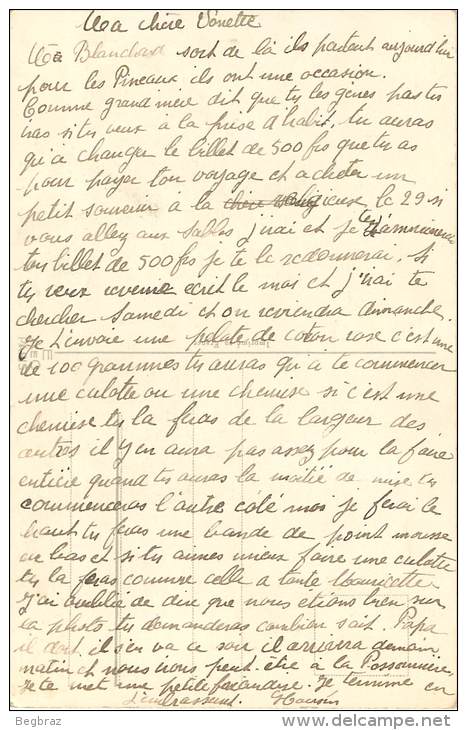 Ma chère Vonette
Me Blanchard sort de là ils partent aujourd'hui
pour les Pineaux ils ont une occasion.
Comme grand mère dit que tu les gènes pas tu
iras si tu veux à la prise d'habit, tu auras
qu'à changer le billet de 500 frs que tu as
pour payer ton voyage et acheter un
petit souvenir à la religieuse, le 29 si
vous allez aux Sables j'irai et je t'ammènerai
ton billet de 500 frs je te le redonnerai. Si
tu veux revenir ecrit le moi et j'irai te
chercher Samedi et on reviendra dimanche.
Je t'envoie une pelote de coton rose c'est une
de 100 grammes tu auras qu'à te commencer
une culotte ou une chemise si c'est une
chemise tu la feras de la largeur des
autres il y en aura pas assez pour la faire
entière quand tu auras la moitié de mise tu
commenceras l'autre côté moi je ferai le
haut tu feras une bande de point mousse
en bas et si tu aimes mieux faire une culotte
tu la feras comme celle a tante Mauricette
J'ai oublié de dire que nous étions bien sur
la photo tu demanderas combien sait. Papa
il dort il s'en va ce soir il arrivera demain
matin et nous irons peut-être à la Poissonnière
Je te met une petite friandise. Je termine en
t'embrassant. Maman
Begbraz